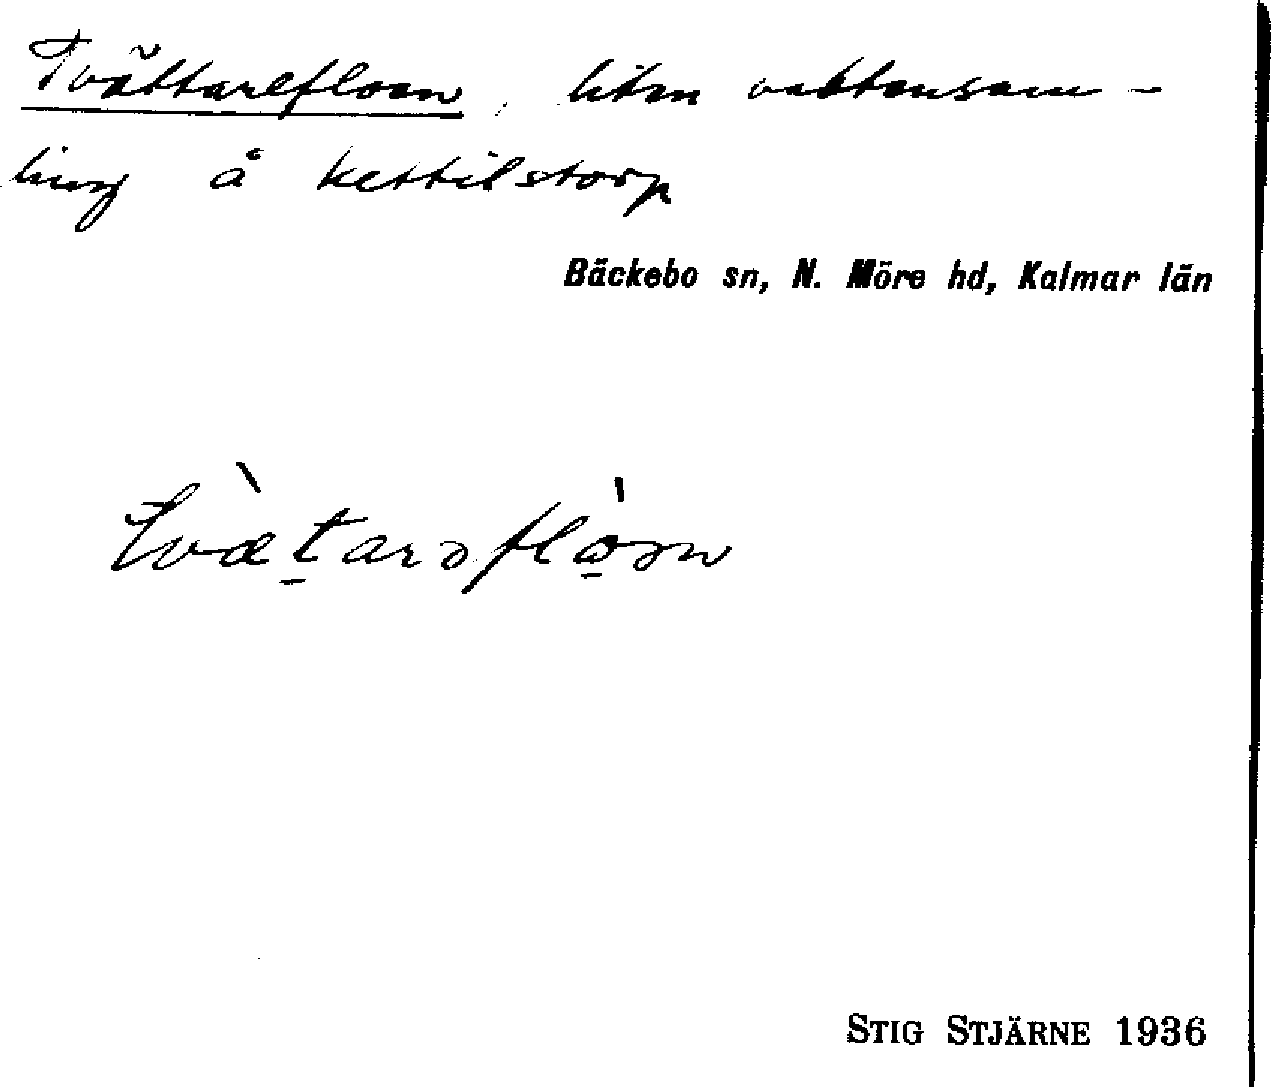 Tvättarefloan, liten vattensam-
ling å Kettilstorp
Bäckebo sn, N. Möre hd, Kalmar län
STIG STJÄRNE 1936